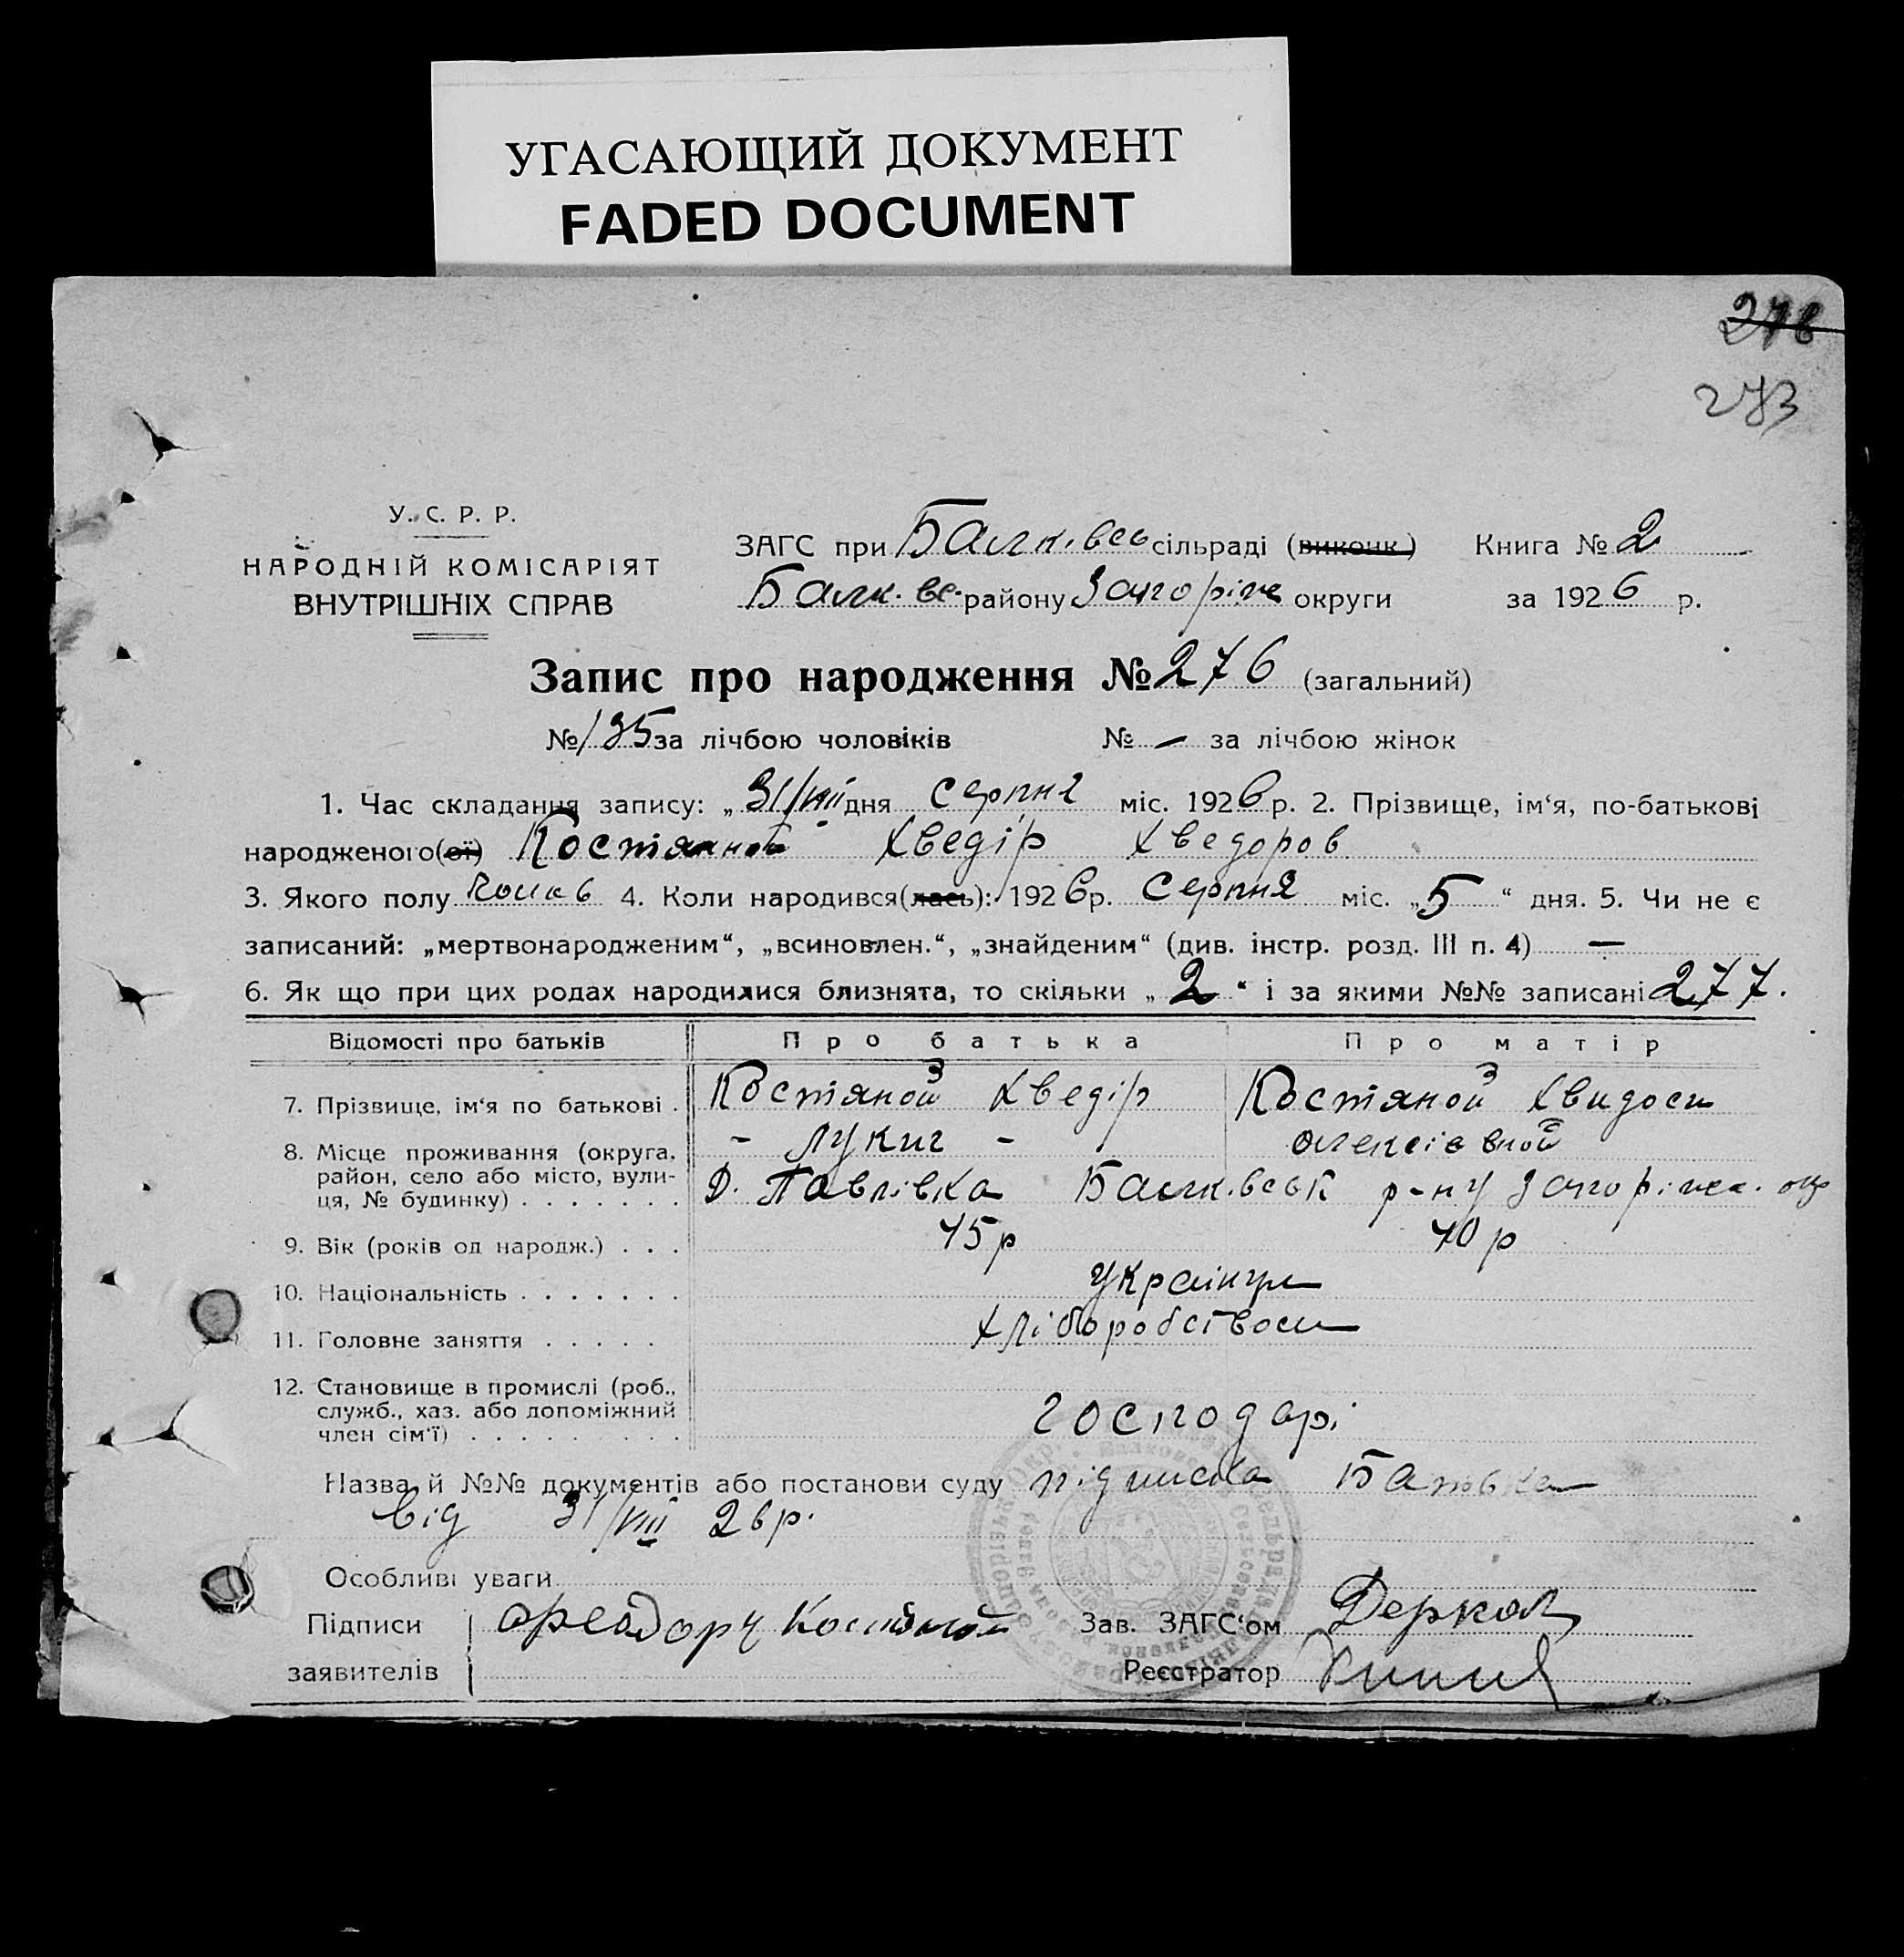 УГАСАЮЩИЙ ДОКУМЕНТ
FADED DOCUMENT
276
273
У. С. Р. Р.
НАРОДНІЙ КОМІСАРІЯТ
ВНУТРІШНІХ СПРАВ
ЗАГС при Балківсь сільраді (виконк.) Книга № 2
Балк.вс. району Запоріж округи за 1926 р.
Запис про народження № 276 (загальний)
№ 135 за лічбою чоловіків № — за лічбою жінок
1. Час складання запису: „31/VIII дня серпня міс. 1926 р. 2. Прізвище, ім‘я, по-батькові
народженого(ої) Костяной Хведір Хведоров
3. Якого полу 4. Коли народився(лась): 1926 р. серпня міс. „5“ дня. 5. Чи не є
записаний: „мертвонародженим“, „всиновлен.“, „знайденим“ (див. інстр. розд. III п. 4) —
6. Як що при цих родах народилися близнята, то скільки „2“ і за якими №№ записані 277.
Відомості про батьків Про батька Про матір
7. Прізвище, ім‘я по батькові . Костяной Хведір Костяной Хвидоси
- Лукич - Олексіевной
8. Місце проживання (округа, район, село або місто, вулиця, № будинку) . . . . . . . Д. Павлівка Балк.вськ р-ну Запоріжк. окр
9. Вік (років од народж.) . . . 45 р 40 р
10. Національність . . . . . . . українци
11. Головне заняття . . . . . хліборобством
12. Становище в промислі (роб., служб., хаз. або допоміжний член сім‘ї) . . . . . . . . господарі
Назва й №№ документів або постанови суду підписка Батька
від 31/VIII 26 р.
Особливі уваги
Підписи заявителів Феодору Костяной
Зав. ЗАГС‘ом Деркач
Реєстратор